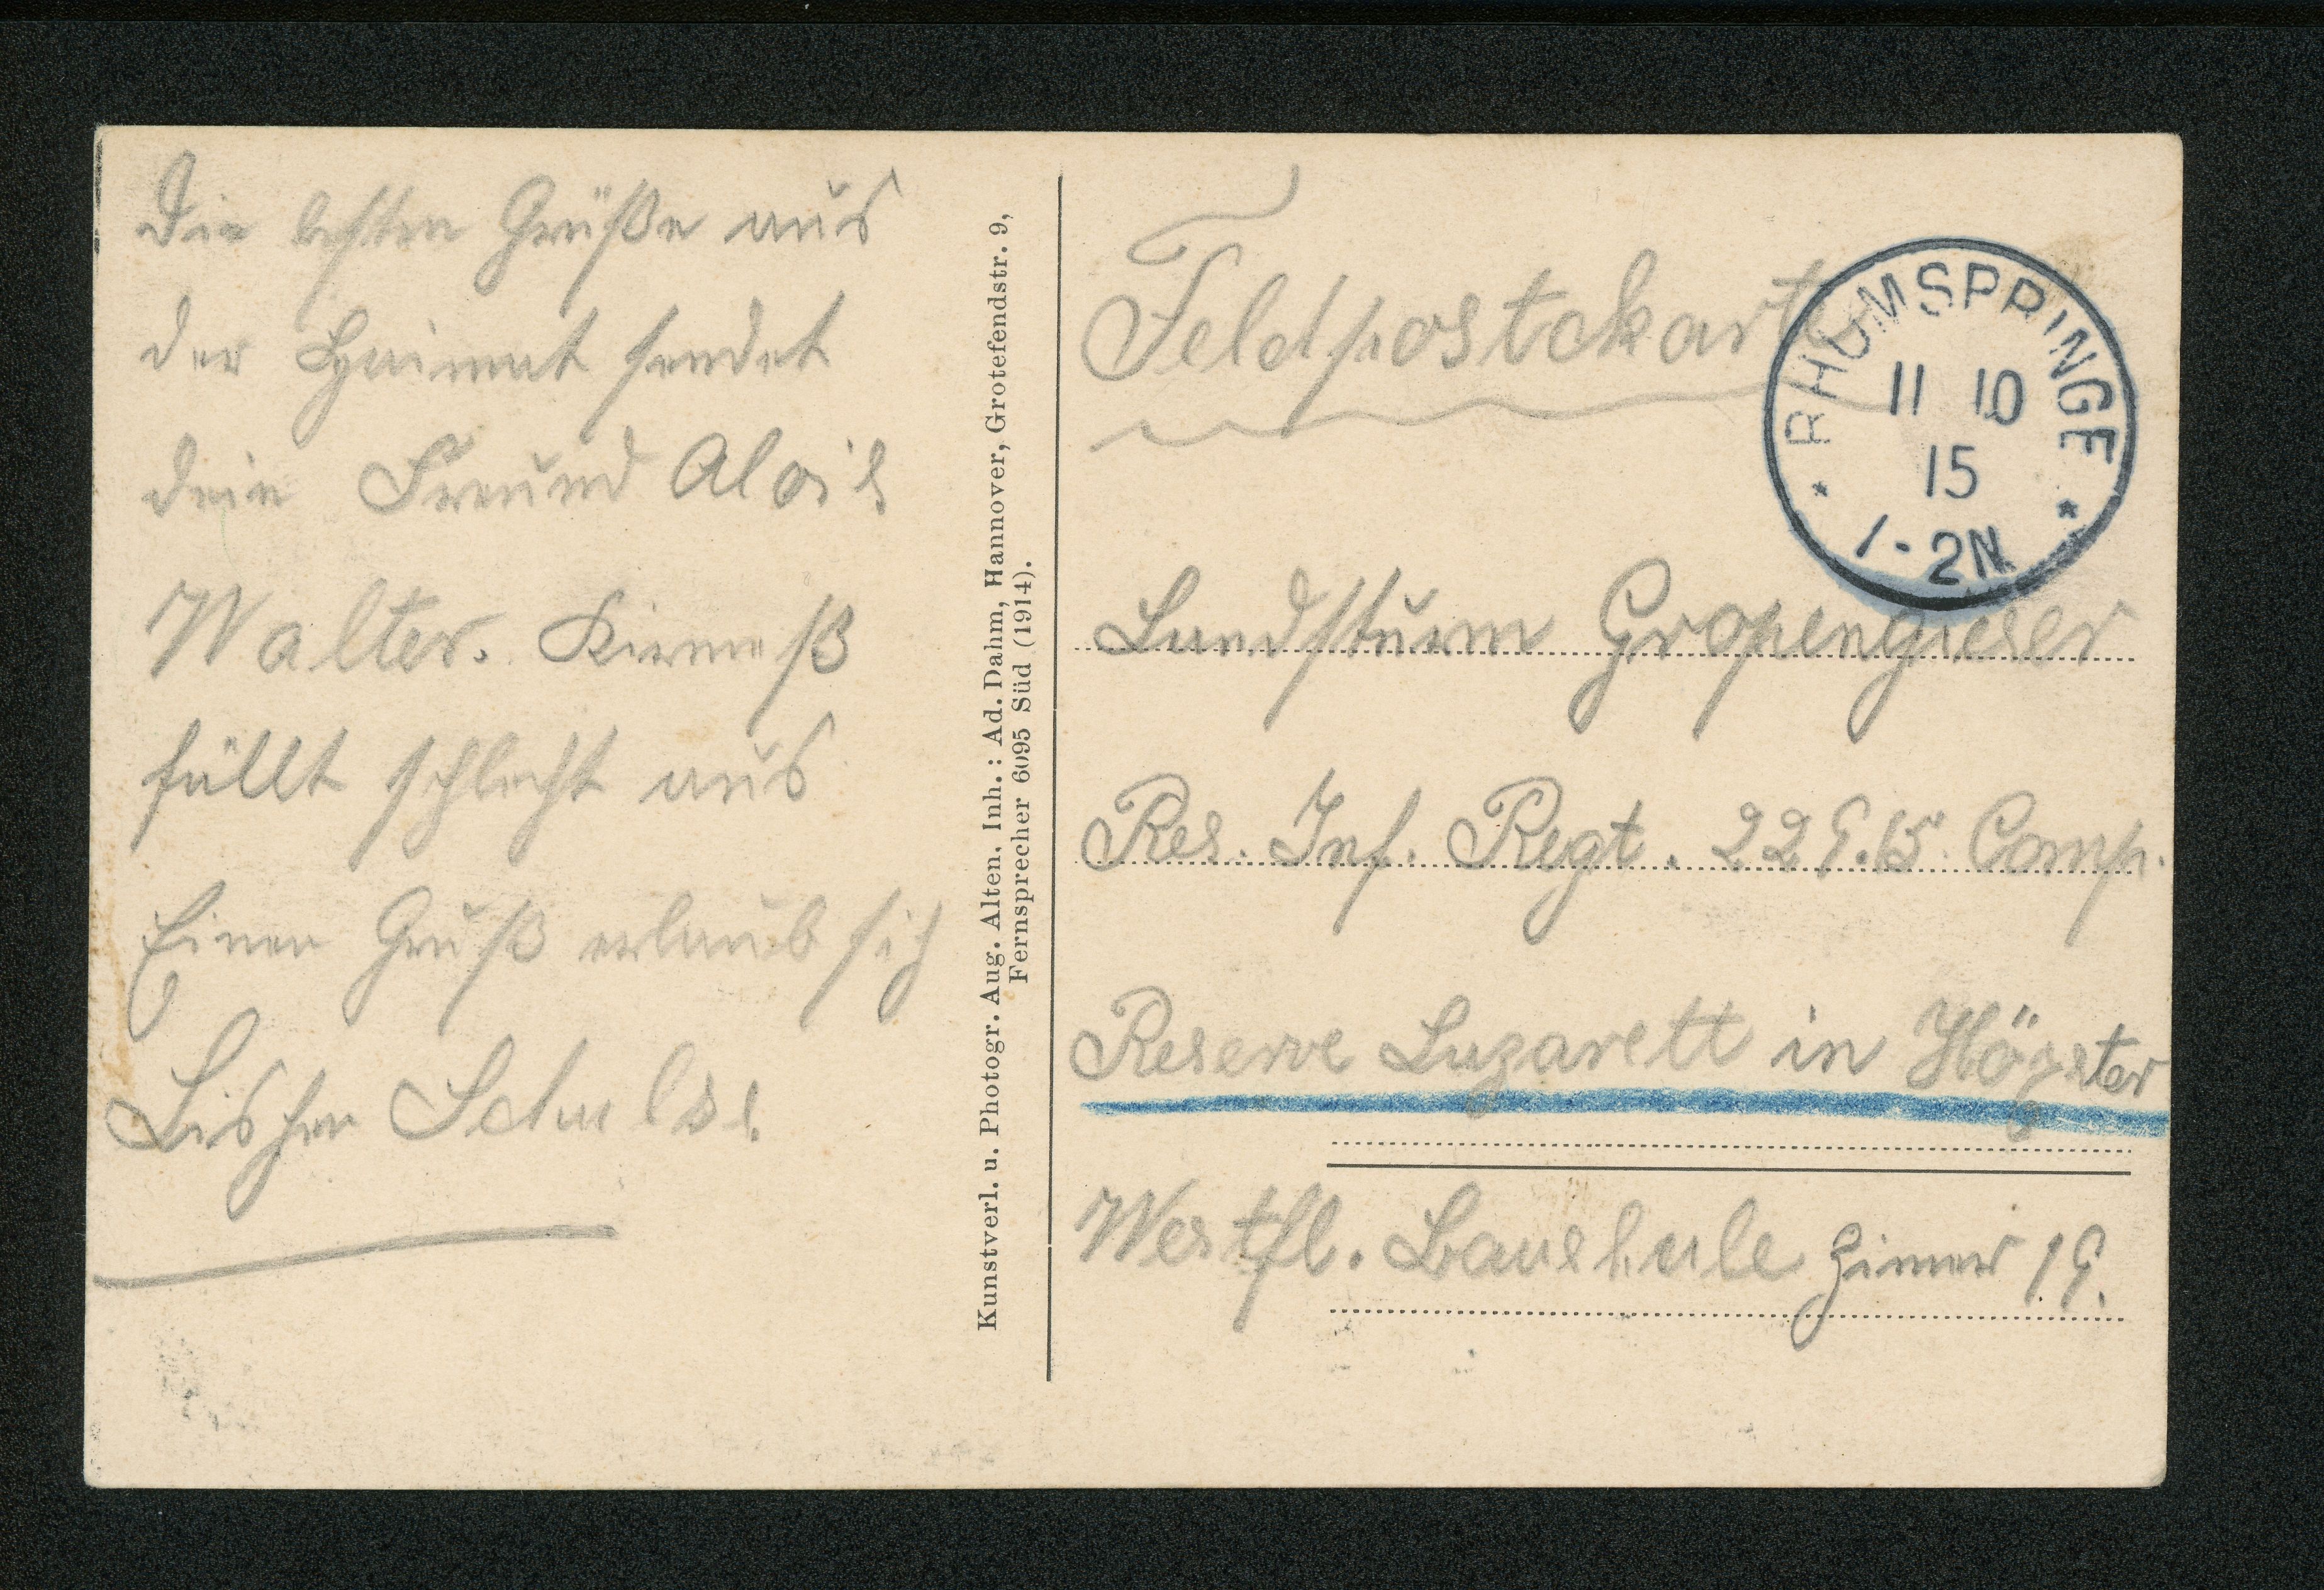 Die besten Grüße aus
der Heimat sendet
dein Freund Alois
Walter. Kirmeß
füllt schlecht aus
Einen Gruß erlaub sich
Lischen Schulze.
Kunstverl. u. Photogr. Aug. Alten. Inh.: Ad. Dahm, Hannover, Grotefendstr. 9,
Fernsprecher 6095 Süd (1914).
Feldpostckarte
RHUMSPRINGE
11 10
15
1-2N
Landsturm Gropengieser
Res. Inf. Regt. 229.15 Comp.
Reserve Lazarett in Högster
Westfl. Bauschule Zimer 19.